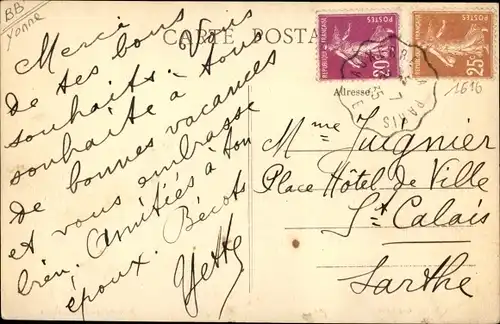 BB
Yonne
CARTE POSTA
Merci
de tes bons
souhaits. Vous
souhaite à tous
de bonnes vacances
et vous embrasse
bien, Amitiés à ton
époux. Bécots
Yette
REPUBLIQUE FRANÇAISE
POSTES
20c
REPUBLIQUE FRANÇAISE
POSTES
25c
PARIS
1616
Adresse
Mme Juignier
Place Hôtel de Ville
St Calais
Sarthe